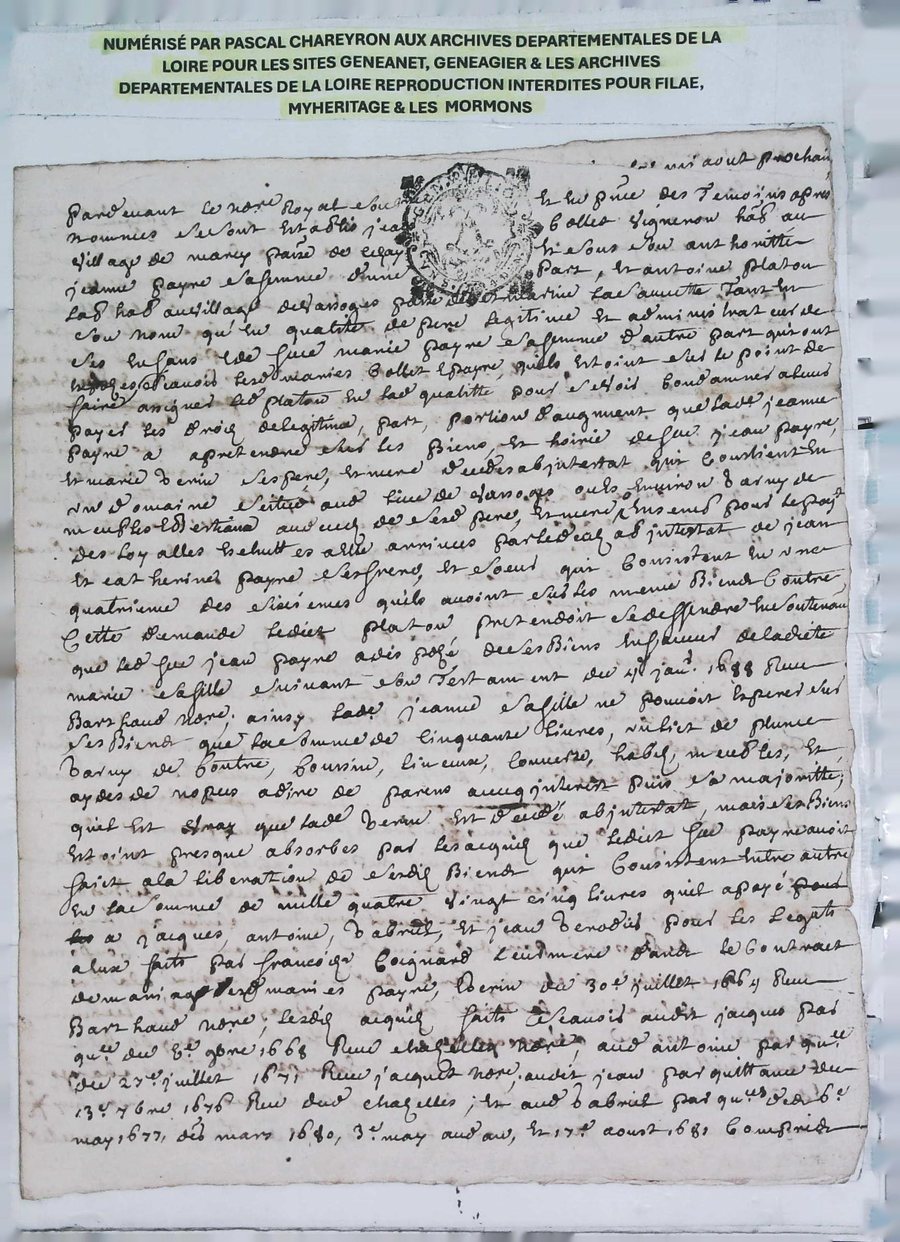 NUMÉRISÉ PAR PASCAL CHAREYRON AUX ARCHIVES DEPARTEMENTALES DE LA
LOIRE POUR LES SITES GENEANET, GENEAGIER & LES ARCHIVES
DEPARTEMENTALES DE LA LOIRE REPRODUCTION INTERDITES POUR FILAE,
MYHERITAGE & LES MORMONS
aout prochain
pardevant le nore Royal et en p~nce des Temoins apres
nommes se sont establis jea bollet vigneron hab au
village de marcy paroisse de et sous son authoritte
jeanne payre sa femme d'une part, Et antoine platon
lab hab au village de paroisse de Tant en
son nom qu'en qualitte de pere legitime Et administrateur de
ses Enfans & de feue marie payre sa femme d'autre part qui ont
les maries bollet & payre, quils Estoint sur le point de
faire assigner led platon En lad qualitte pour se voir Condamner a leur
payer les droicts de legitime, part, portion d'augment que lad jeanne
payre a a pretendre sur les Biens, Et hoirie de feu jean payre,
Et marie Verin ses pere, Et mere decedes abjntestat qui Consistent En
un domaine situé aud lieu de
meubles Et bestiaux aud de sesd pere, Et mere Ensemble pour le payt
des loyalles Escheuttes a elle arrivées par le deces abjntestat de jean
Et catherine payre ses frere, Et soeur qui Consistent En une
quatrieme des sixiemes quils avoint sur les meme Biens Contre
Cette demande ledict platon pretendoit se deffendre En soutenant
que led feu jean payre a disposé de ses Biens En faveur de ladicte
marie sa fille suivant son Testament du 4e janr 1688 Receu
Barthaud nore; ainsy lade jeanne sa fille ne pouvoit Esperer sur
ses Biens que la somme de Cinquante livres, un lict de plume
garny de Coutre, Coussin, linceux, Couverte, habits, meubles, Et
aydes de nopces a dire de parens auecq jnterest puis sa majoritte;
quil Est vray que lade Verin Est decedé abjntestat, mais ses Biens
Estoint presque absorbes par les acquits que ledict feu payre avoit
faict a la liberation de sesdits Biens qui Consistent Entre autre
En la somme de mille quatre vingt cinq livres quil a payé pour
a jacques, antoine, Gabriel, Et jean pour les legats
a eux faits par francoise Coignard leur mere dans le Contract
de mariage desd maries payre, & Verin du 30e juillet 1664 Receu
Barthaud nore; lesdits acquits faits a scavoir audit jacques par
quce du 8e 9bre 1668 Receu chazelles nore, aud antoine par quce
du 27e juillet 1671 Receu jacquet nore, audit jean par quittance du
13e 7bre 1676 Receu dud chazelles; Et aud Gabriel par quces des 6e
may 1677, mars 1680, 3e may aud an, Et 17e aoust 1681 Compris